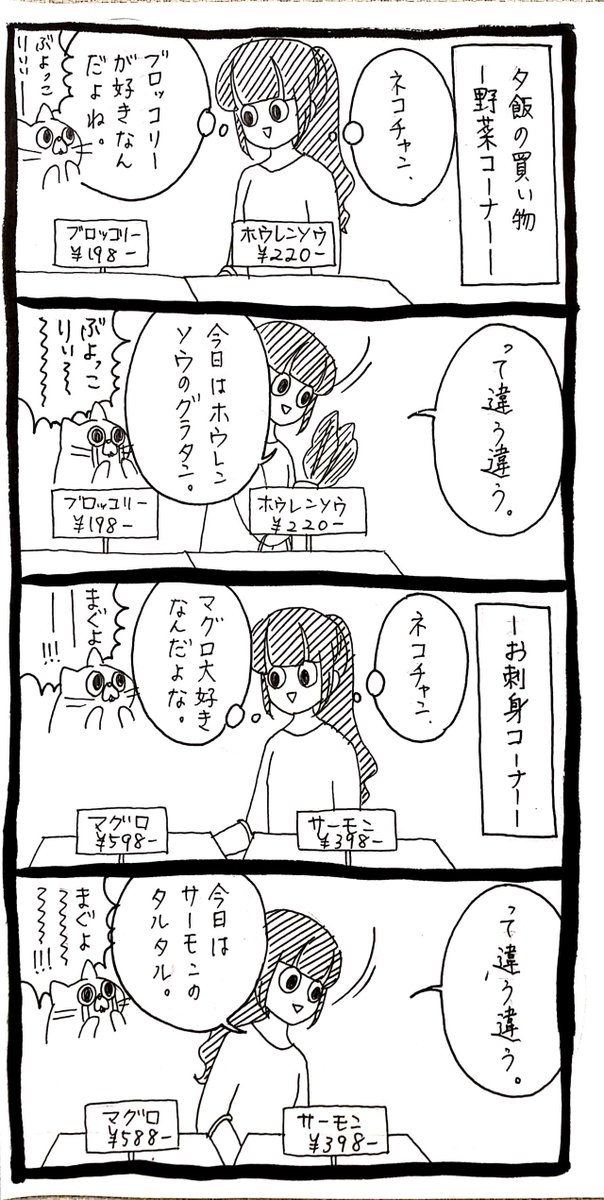 夕飯の買い物
ー野菜コーナーー
ネコチャン、
ブロッコリー
が好きなん
だよね。
ぶよっこ
りぃぃー
ブロッコリー
¥198-
ホウレンソウ
¥220-
って違う違う。
今日はホウレン
ソウのグラタン。
ぶよっこ
りぃ〜〜
ブロッコリー
¥198-
ホウレンソウ
¥220-
ーお刺身コーナーー
ネコチャン、
マグロ大好き
なんだよな。
まぐよ
ーー!!!
マグロ
¥598-
サーモン
¥398-
って違う違う。
今日は
サーモンの
タルタル。
まぐよ
〜〜!!!
マグロ
¥588-
サーモン
¥398-